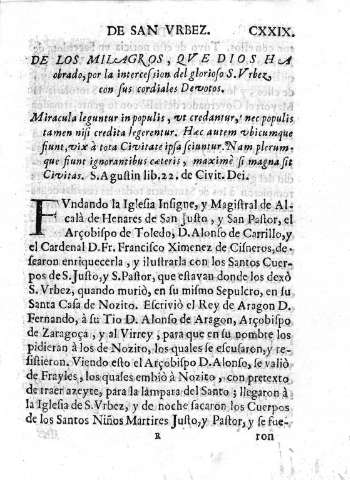 DE SAN VRBEZ. CXXIX.
DE LOS MILAGROS, QVE DIOS HA
obrado, por la intercession del glorioso S. Vrbez,
con sus cordiales Devotos.
Miracula leguntur in populis, vt credantur, nec populis
tamen nisi credita legerentur. Hac autem vbicumque
fiunt, vix à tota Civitate ipsa sciuntur. Nam plerum-
que fiunt ignorantibus cateris, maximè si magna sit
Civitas. S. Agustin lib. 22. de Civit. Dei.
FVndando la Iglesia Insigne, y Magistral de Al-
calà de Henares de San Justo, y San Pastor, el
Arçobispo de Toledo, D. Alonso de Carrillo, y
el Cardenal D. Fr. Francisco Ximenez de Cisneros, de-
searon enriquecerla, y ilustrarla con los Santos Cuer-
pos de S. Justo, y S. Pastor, que estavan donde los dexò
S. Vrbez, quando muriò, en su mismo Sepulcro, en su
Santa Casa de Nozito. Escriviò el Rey de Aragon D.
Fernando, à su Tio D. Alonso de Aragon, Arçobispo
de Zaragoça, y al Virrey, para que en su nombre los
pidieran à los de Nozito, los quales se escusaron, y re-
sistieron. Viendo esto el Arçobispo D. Alonso, se valiò
de Frayles, los quales embiò à Nozito, con pretexto
de traer azeyte, para la lampara del Santo; llegaron à
la Iglesia de S. Vrbez, y de noche sacaron los Cuerpos
de los Santos Niños Martires Justo, y Pastor, y se fue-
R ron